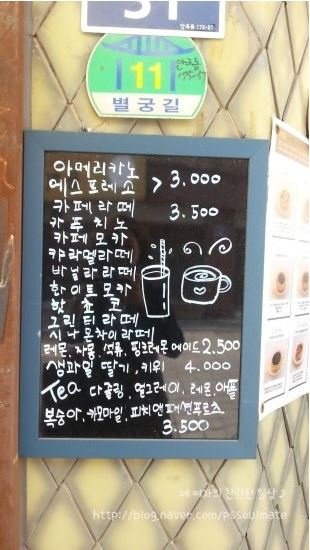 51
안국동 175-87
11
안국동
175-87
별궁길
아메리카노
에스프레소 > 3.000
카페라떼 3.500
카푸치노
카페모카
캬라멜라떼
바닐라라떼
화이트모카
핫초코
그린티라떼
시나몬차이라떼
레몬, 자몽, 석류, 핑크레몬에이드 2.500
생과일 딸기, 키위 4.000
Tea 다즐링, 얼그레이, 레몬, 애플
복숭아, 카모마일, 피치앤패션푸르츠
3.500
네 여자의 찬란한 일상♪
http://blog.naver.com/pssoulmate